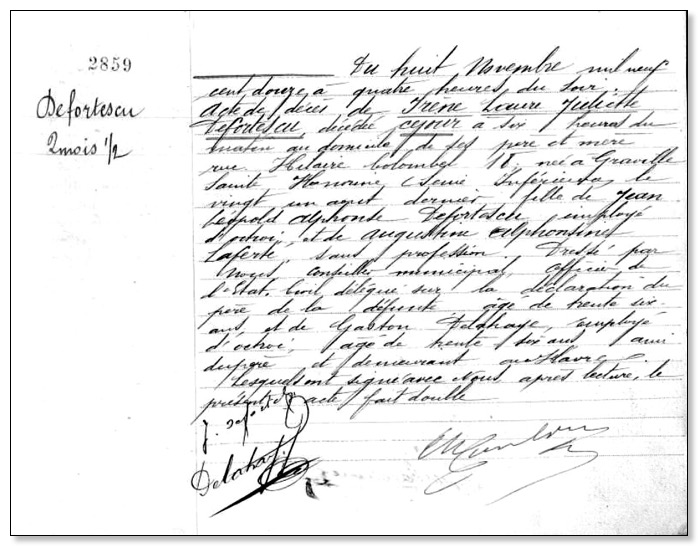 2859
Defortescu
2 mois 1/2
Du huit Novembre mil neuf
cent douze, à quatre heures du soir.
Acte de décès de Irène Louise Juliette
Defortescu, décédée ce jour à six heures du
matin au domicile de ses père et mère
rue Hilaire Colombel 18, née à Graville
Sainte Honorine (Seine Inférieure, le
vingt un août dernier, fille de Jean
Léopold Alphonse Defortescu employé
d'octroi, et de Augustine Alphonsine
Laferté, sans profession. Dressé par
Nous, conseiller municipal, officier de
l'Etat Civil délégué sur la déclaration du
père de la défunte âgé de trente six
ans, et de Gaston Delahaye, employé
d'octroi, âgé de trente six ans, ami
du père et demeurant au Havre,
Lesquels ont signé avec Nous après lecture, le
présent acte fait double
J. Defortescu
Delahaye